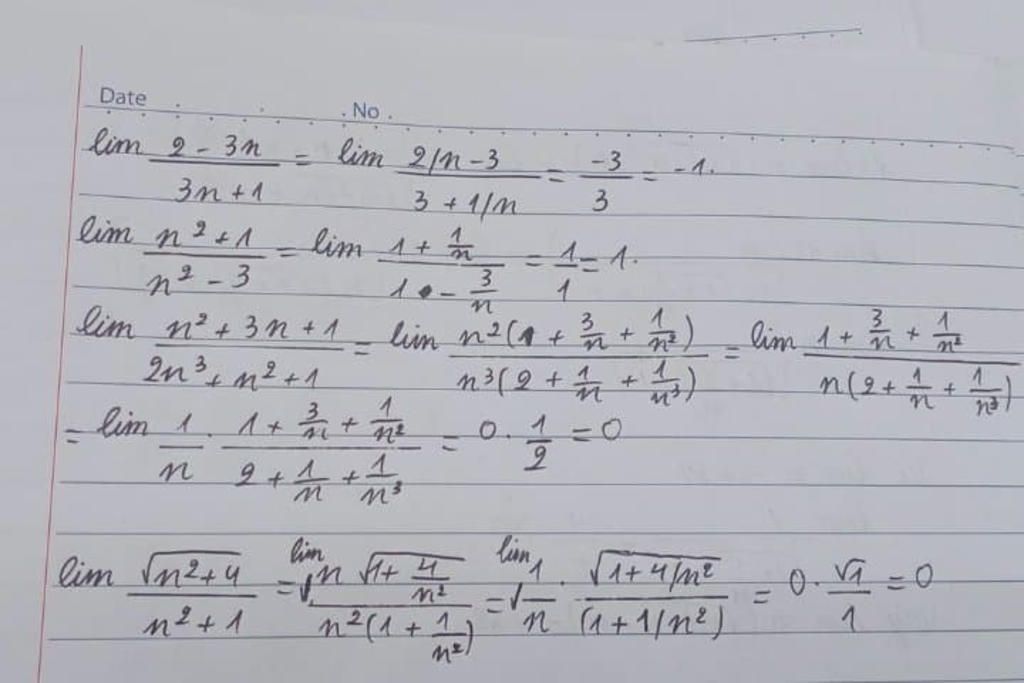 Date No.
lim (2 - 3n)/(3n + 1) = lim (2/n - 3)/(3 + 1/n) = -3/3 = -1.
lim (n² + 1)/(n² - 3) = lim (1 + 1/n)/(1 - 3/n) = 1/1 = 1.
lim (n² + 3n + 1)/(2n³ + n² + 1) = lim n²(1 + 3/n + 1/n²)/n³(2 + 1/n + 1/n³) = lim (1 + 3/n + 1/n²)/n(2 + 1/n + 1/n³)
= lim 1/n · (1 + 3/n + 1/n²)/(2 + 1/n + 1/n³) = 0 · 1/2 = 0
lim √(n² + 4)/(n² + 1) = lim n√(1 + 4/n²)/n²(1 + 1/n²) = lim 1/n · √(1 + 4/n²)/(1 + 1/n²) = 0 · √1/1 = 0